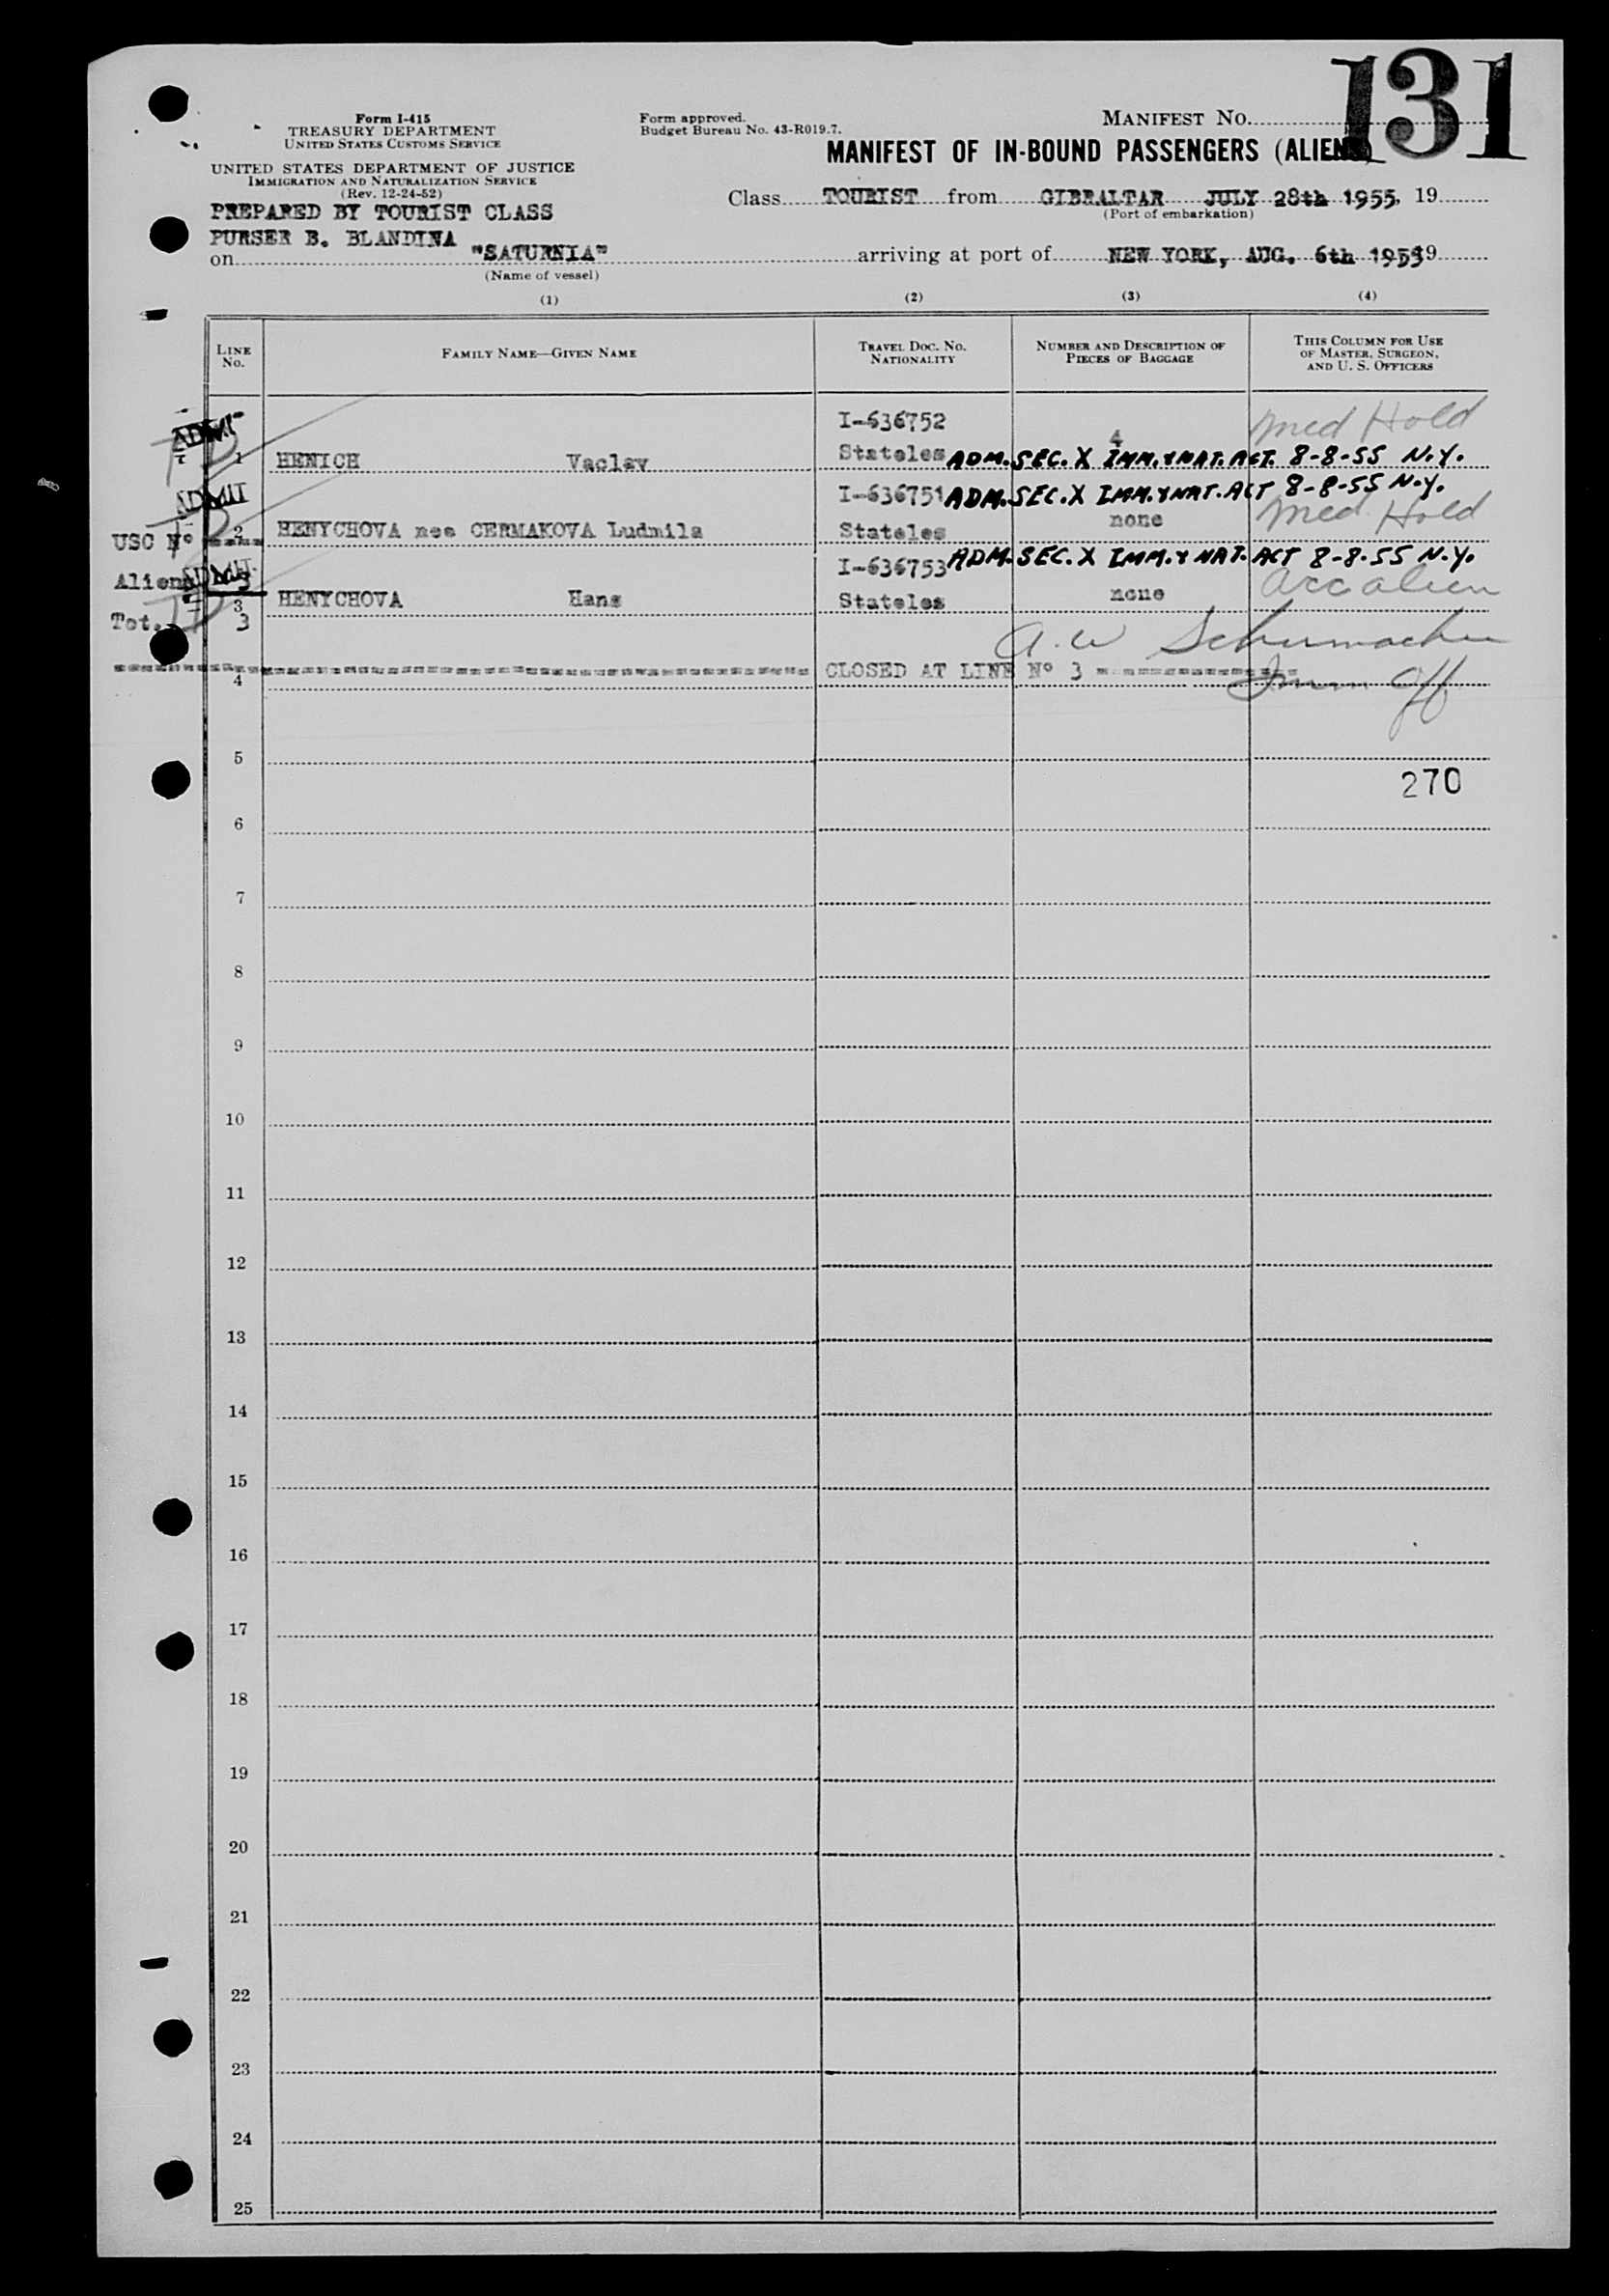 131
Form I-415
TREASURY DEPARTMENT
UNITED STATES CUSTOMS SERVICE
UNITED STATES DEPARTMENT OF JUSTICE
IMMIGRATION AND NATURALIZATION SERVICE
(Rev. 12-24-52)
Form approved.
Budget Bureau No. 43-R019.7.
MANIFEST NO.
MANIFEST OF IN-BOUND PASSENGERS (ALIENS)
PREPARED BY TOURIST CLASS
PURSER B. BLANDINA
Class TOURIST from GIBRALTAR JULY 28th 1955, 19
(Port of embarkation)
on "SATURNIA" arriving at port of NEW YORK, AUG. 6th 1955 19
(Name of vessel)
(1) (2) (3) (4)
LINE No.
FAMILY NAME—GIVEN NAME
TRAVEL DOC. NO. NATIONALITY
NUMBER AND DESCRIPTION OF PIECES OF BAGGAGE
THIS COLUMN FOR USE OF MASTER, SURGEON, AND U. S. OFFICERS
ADMIT
I-636752 Med Hold
1 HENICH Vaclav Stateles 4 ADM. SEC. X IMM. & NAT. ACT. 8-8-55 N.Y.
ADMIT
I-636751 ADM. SEC. X IMM. & NAT. ACT 8-8-55 N.Y.
USC N°
2 HENYCHOVA nee CERMAKOVA Ludmila Stateles none Med. Hold
Aliens 3
ADMIT
I-636753 ADM. SEC. X IMM. & NAT. ACT 8-8-55 N.Y.
3 HENYCHOVA Hana Stateles none acc alien
Tot. 3
A. W Schumacher
4 CLOSED AT LINE N° 3
Imm. Off
5
270
6
7
8
9
10
11
12
13
14
15
16
17
18
19
20
21
22
23
24
25